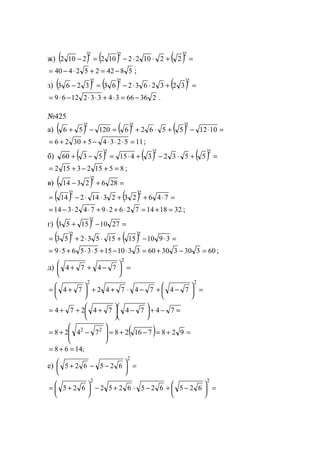 ж) (2√10 − √2)² = (2√10)² − 2·2√10·√2 + (√2)² =
= 40 − 4·2√5 + 2 = 42 − 8√5 ;
з) (3√6 − 2√3)² = (3√6)² − 2·3√6·2√3 + (2√3)² =
= 9·6 − 12√2·3·3 + 4·3 = 66 − 36√2 .
№425
а) (√6 + √5)² − √120 = (√6)² + 2√6·√5 + (√5)² − √12·10 =
= 6 + 2√30 + 5 − √4·3·2·5 = 11;
б) √60 + (√3 − √5)² = √15·4 + (√3)² − 2√5·√3 + (√5)² =
= 2√15 + 3 − 2√15 + 5 = 8 ;
в) (√14 − 3√2)² + 6√28 =
= (√14)² − 2·√14·3√2 + (3√2)² + 6√4·7 =
= 14 − 3·2√7·2 + 9·2 + 6·2√7 = 14 + 18 = 32 ;
г) (3√5 + √15)² − 10√27 =
= (3√5)² + 2·3√5·√15 + (√15)² − 10√9·3 =
= 9·5 + 6√5·3·5 + 15 − 10·3√3 = 60 + 30√3 − 30√3 = 60 ;
д) (√4+√7 + √4−√7)² =
= (√4+√7)² + 2√4+√7·√4−√7 + (√4−√7)² =
= 4 + √7 + 2√(4+√7)(4−√7) + 4 − √7 =
= 8 + 2√(4² − √7²) = 8 + 2√(16 − 7) = 8 + 2√9 =
= 8 + 6 = 14;
е) (√5+2√6 − √5−2√6)² =
= (√5+2√6)² − 2√5+2√6·√5−2√6 + (√5−2√6)² =